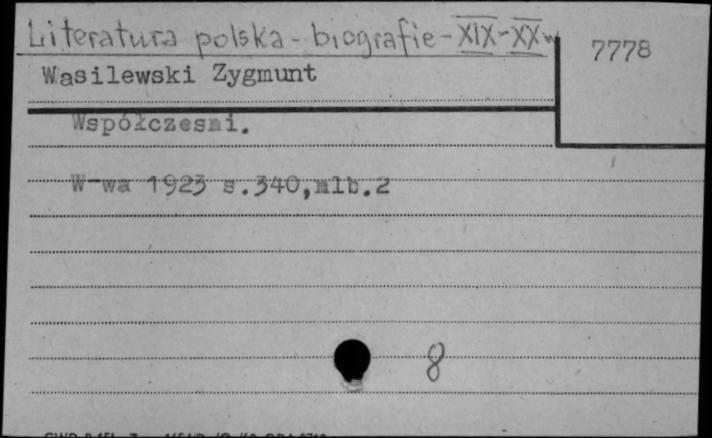 Literatura polska - biografie - XIX - XX w
7778
Wasilewski Zygmunt
Współczesni.
W-wa 1923 s.340,nlb.2
8